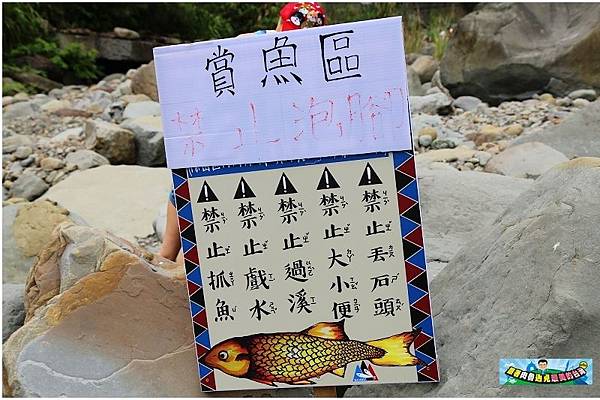 賞魚區
禁止泡腳
禁止抓魚
禁止戲水
禁止過溪
禁止大小便
禁止丟石頭